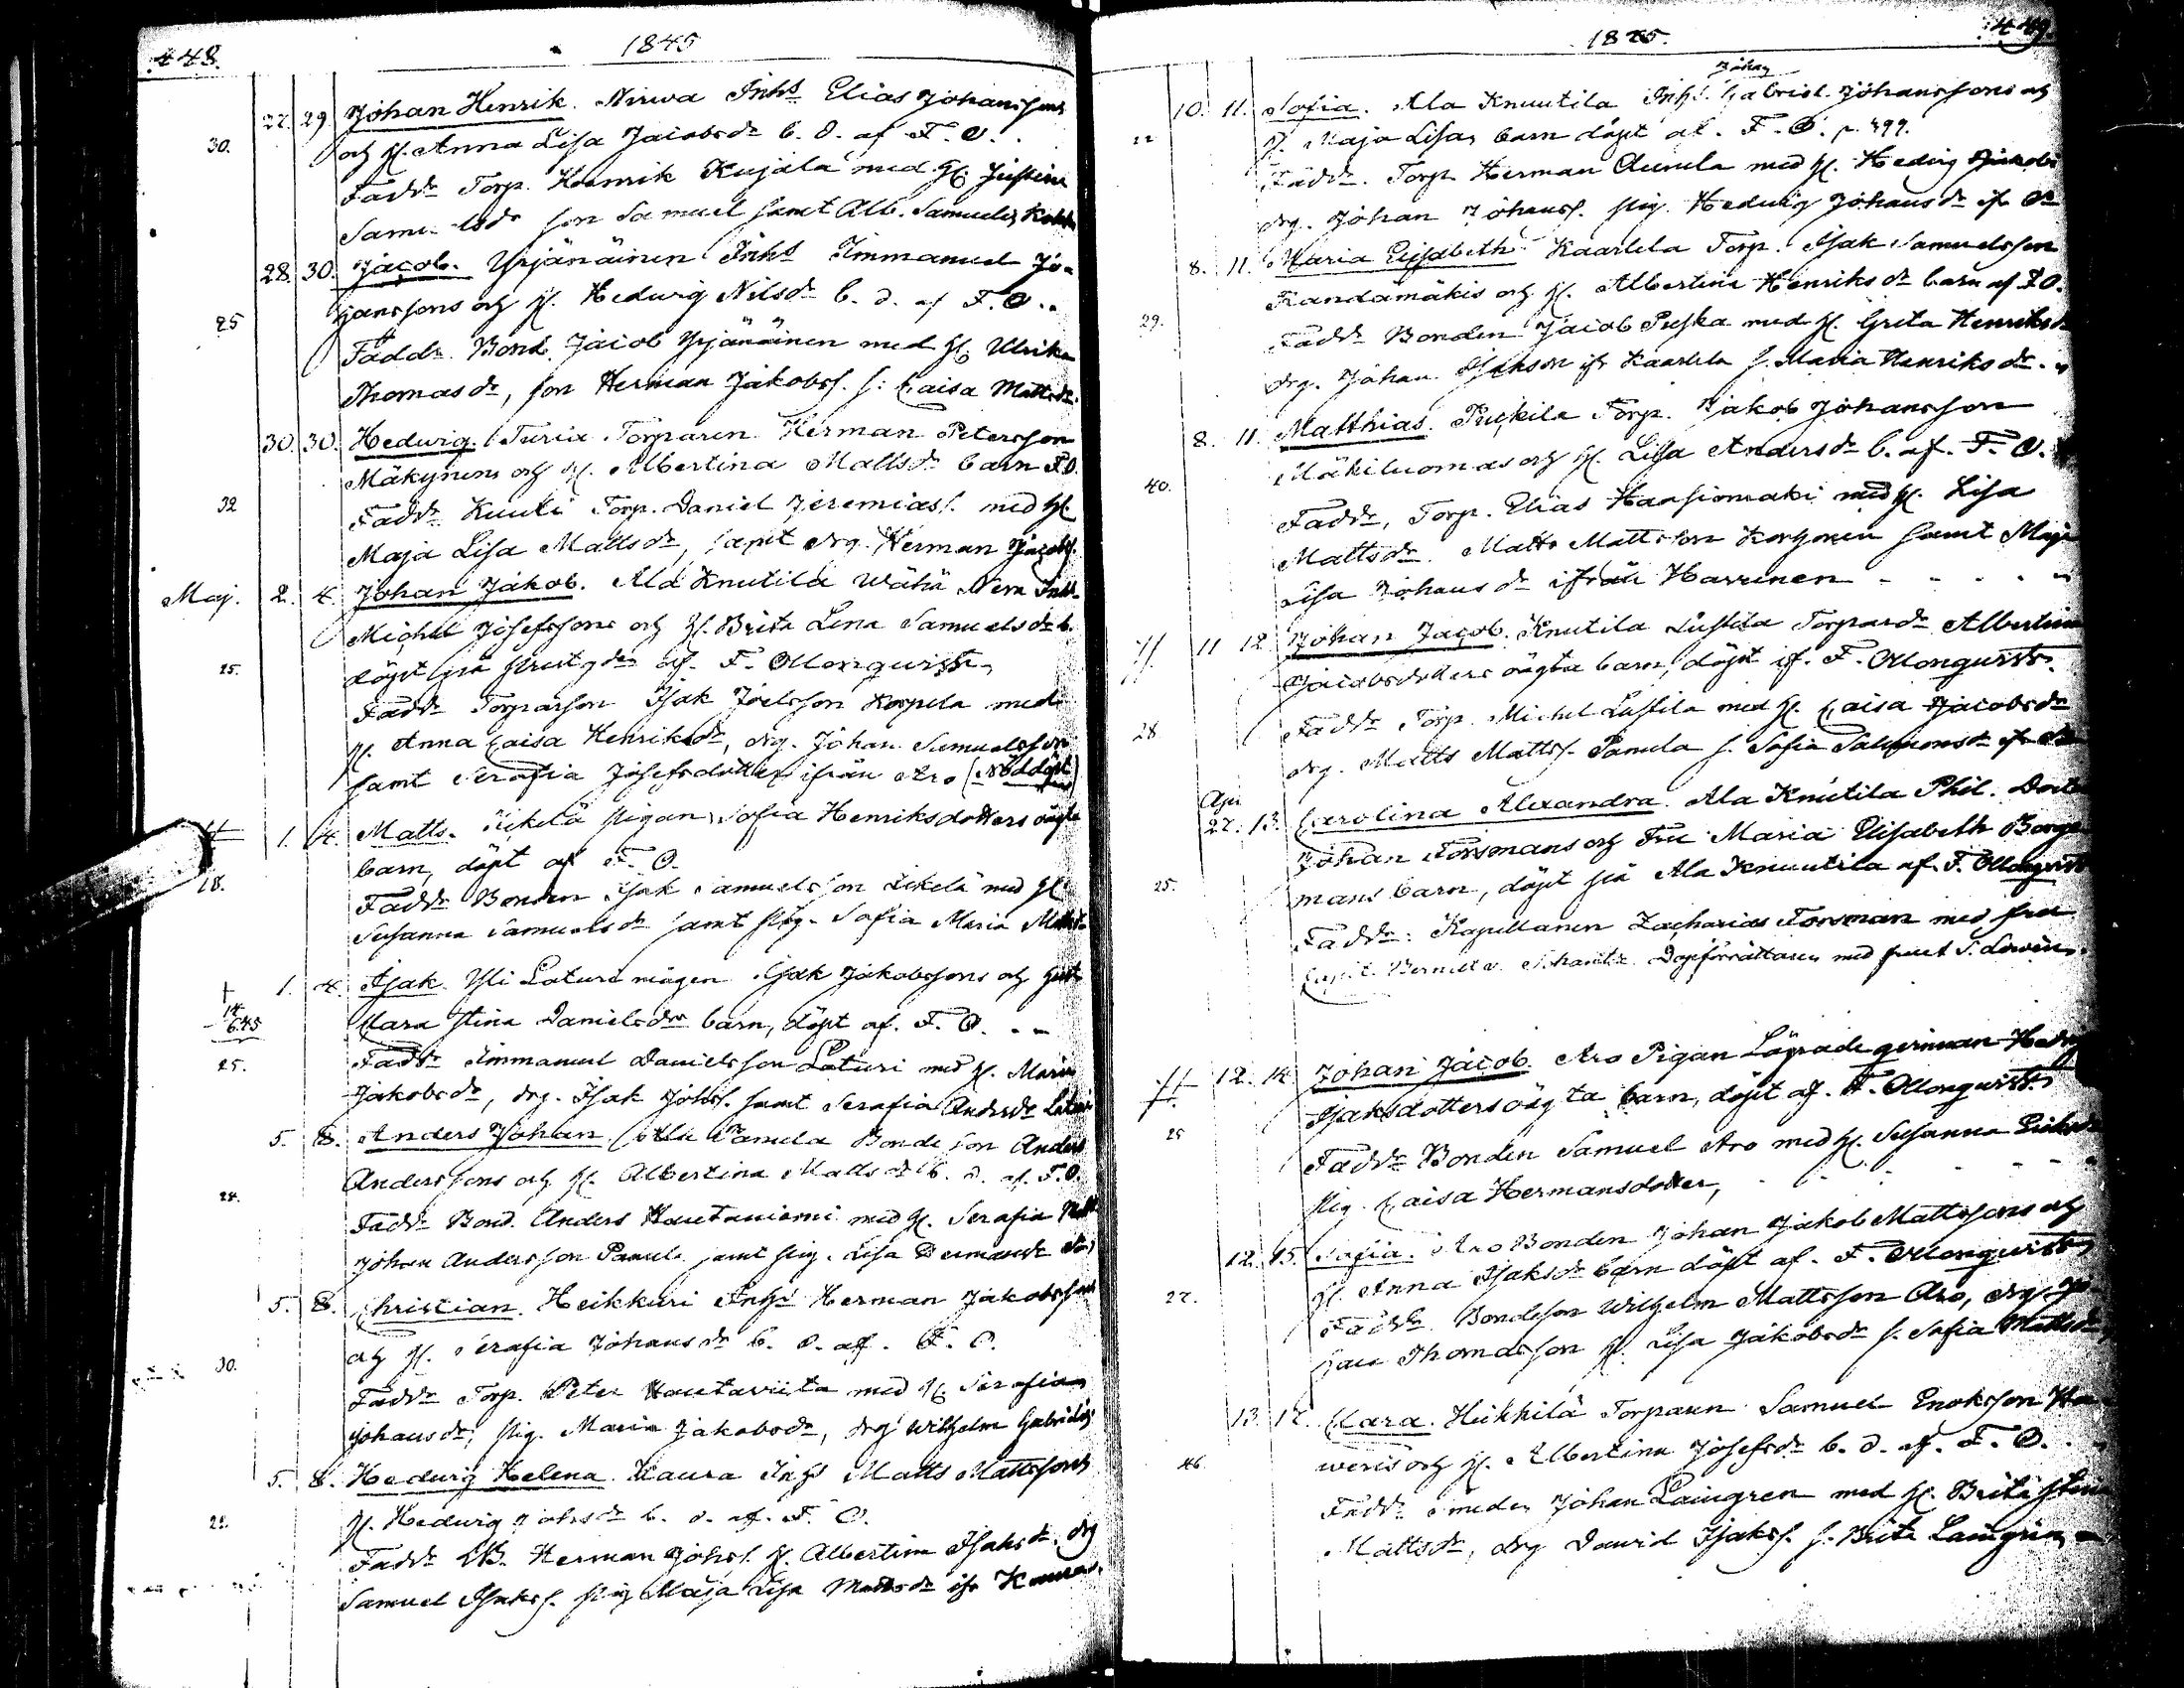 448.
1845
27. 29. Johan Henrik. Nirwa Inhs Elias Johanssons
30. och H. Anna Lisa Jacobsdr b. d. af F. O.
Faddr Torp. Henrik Kujala med H. Justina
Samuelsdr son Samuel samt Alb. Samuels
28. 30. Jacob. Yrjänäinen Inhs Immanuel Jo-
hanssons och H. Hedwig Nilsdr b. d. af F. O.
25 Faddr. Bond. Jacob Yrjänäinen med H. Ulrika
Thomasdr, son Herman Jakobss. p: Caisa Mattsdr.
30. 30. Hedwig. Turia Torparen Herman Petersson
Mäkynens och H. Albertina Mattsdr barn F.O.
32 Faddr Knuti Torp. Daniel Jeremiass. med H.
Maja Lisa Mattsdr, samt drg. Herman Jacobs.
Maj. 2. 4. Johan Jakob. Ala Knutila Wähä Nera Inhs.
Michel Josefssons och H. Brita Lena Samuelsdr b.
25. döpt på af F. Ollonquist,
Faddr Torparson Isak Joelsson Korpela med
H. Anna Caisa Henriksdr, drg. Johan Samuelsson
samt Serafia Josefsdotter ifrån Aro (Nöddöpt)
1. 4. Matts. Likelä pigan Sofia Henriksdotters oägta
barn, döpt af F. O.
18. Faddr Bonden Isak Samuelsson Likelä med H.
Susanna Samuelsdr samt pig. Sofia Maria
1. 4. Isak. Yli Laturi mågen Isak Jakobssons och
14 6.45 Clara Stina Danielsdrs barn, döpt af F. O.
25. Faddr Immanuel Danielsson Laturi med H. Maria
Jakobsdr, drg. Isak Johss. samt Serafia Andersdr
5. 8. Anders Johan. Ala Panula Bondeson Anders
Anderssons och H. Albertina Mattsdr b. d. af F.O.
24. Faddr Bond. Anders Hautaniemi med H. Serafia
Johan Andersson Panula samt pig. Lisa
5. 8. Christian. Heikkuri Inhs Herman Jakobssons
och H. Serafia Johansdr b. d. af F. O.
30. Faddr Torp. Peter Hautaviita med H. Serafia
Johansdr, pig. Maria Jakobsdr, drg Wilhelm Gabrielss
5. 8. Hedwig Helena. Kaura Inhs Matts Mattssons
H. Hedwig Johsdr b. d. af F. O.
22. Faddr B. Herman Johss. H. Albertina Isaksdr, drg
Samuel Isakss. pig Maja Lisa Mattsdr ifr Kaura.
1845.
449.
Johan
10. 11. Sofia. Ala Knuutila Inhs. Gabriel Johanssons och
22 H. Maja Lisas barn döpt af F. O. p. 499.
Faddr. Torp. Herman Aunula med H. Hedvig
drg. Johan Johanss. pig. Hedwig Johansdr ifr
8. 11. Maria Elisabeth Kaarlela Torp. Isak Samuelsson
Kandamäkis och H. Albertina Henriksdr barn af F.O.
29. Faddr Bonden Jacob Puska med H. Greta Henriksdr
drg. Johan Isaksson ifr Kaarlela p. Maria Henriksdr.
8. 11. Matthias. Puskila Torp. Jakob Johansson
Mäkiluomas och H. Lisa Andersdr b. af F. O.
40. Faddr, Torp. Elias Harsiomaki med H. Lisa
Mattsdr. Matts Mattsson Korhonen samt Maja
Lisa Johansdr ifrån Harrinen
11 12. Johan Jacob. Knutila Lustila Torparedr Albertina
Jacobsdotters oägta barn, döpt af F. Ollonqvist.
28 Faddr Torp. Michel Lustila med H. Caisa Jacobsdr
drg. Matts Mattss. Panula p. Sofia Salomonsdr ifr
Apr. 27. 13. Carolina Alexandra. Ala Knutila Phil. Doct.
Johan Forsmans och Fru Maria Elisabeth Borg-
25. mans barn, döpt på Ala Knuutila af F. Ollonqvist
Faddr: Kapellanen Zacharias Forsman med fru
Capit. Berndt v. Schantz Dopförrättaren med fruet S. Lovén.
12. 14. Johan Jacob. Aro Pigan Löparde Hedvig
Isaksdotters oägta barn, döpt af F. Ollonqvist.
25 Faddr Bonden Samuel Aro med H. Susanna
pig. Caisa Hermansdotter,
12. 15. Sofia. Aro Bonden Johan Jakob Mattssons och
H. Anna Isaksdr barn döpt af F. Ollonqvist
27. Faddr. Bondeson Wilhelm Mattsson Aro, drg. Jo-
han Thomasson H. Lisa Jakobsdr p. Sofia Mattsdr
13. 17. Clara. Heikkilä Torparen Samuel Enoksson
och H. Albertina Josefsdr b. d. af F. O.
46. Faddr Smeden Johan Laingren med H. Brita Stina
Mattsdr, drg Dawid Isakss. p. Brita Laingren